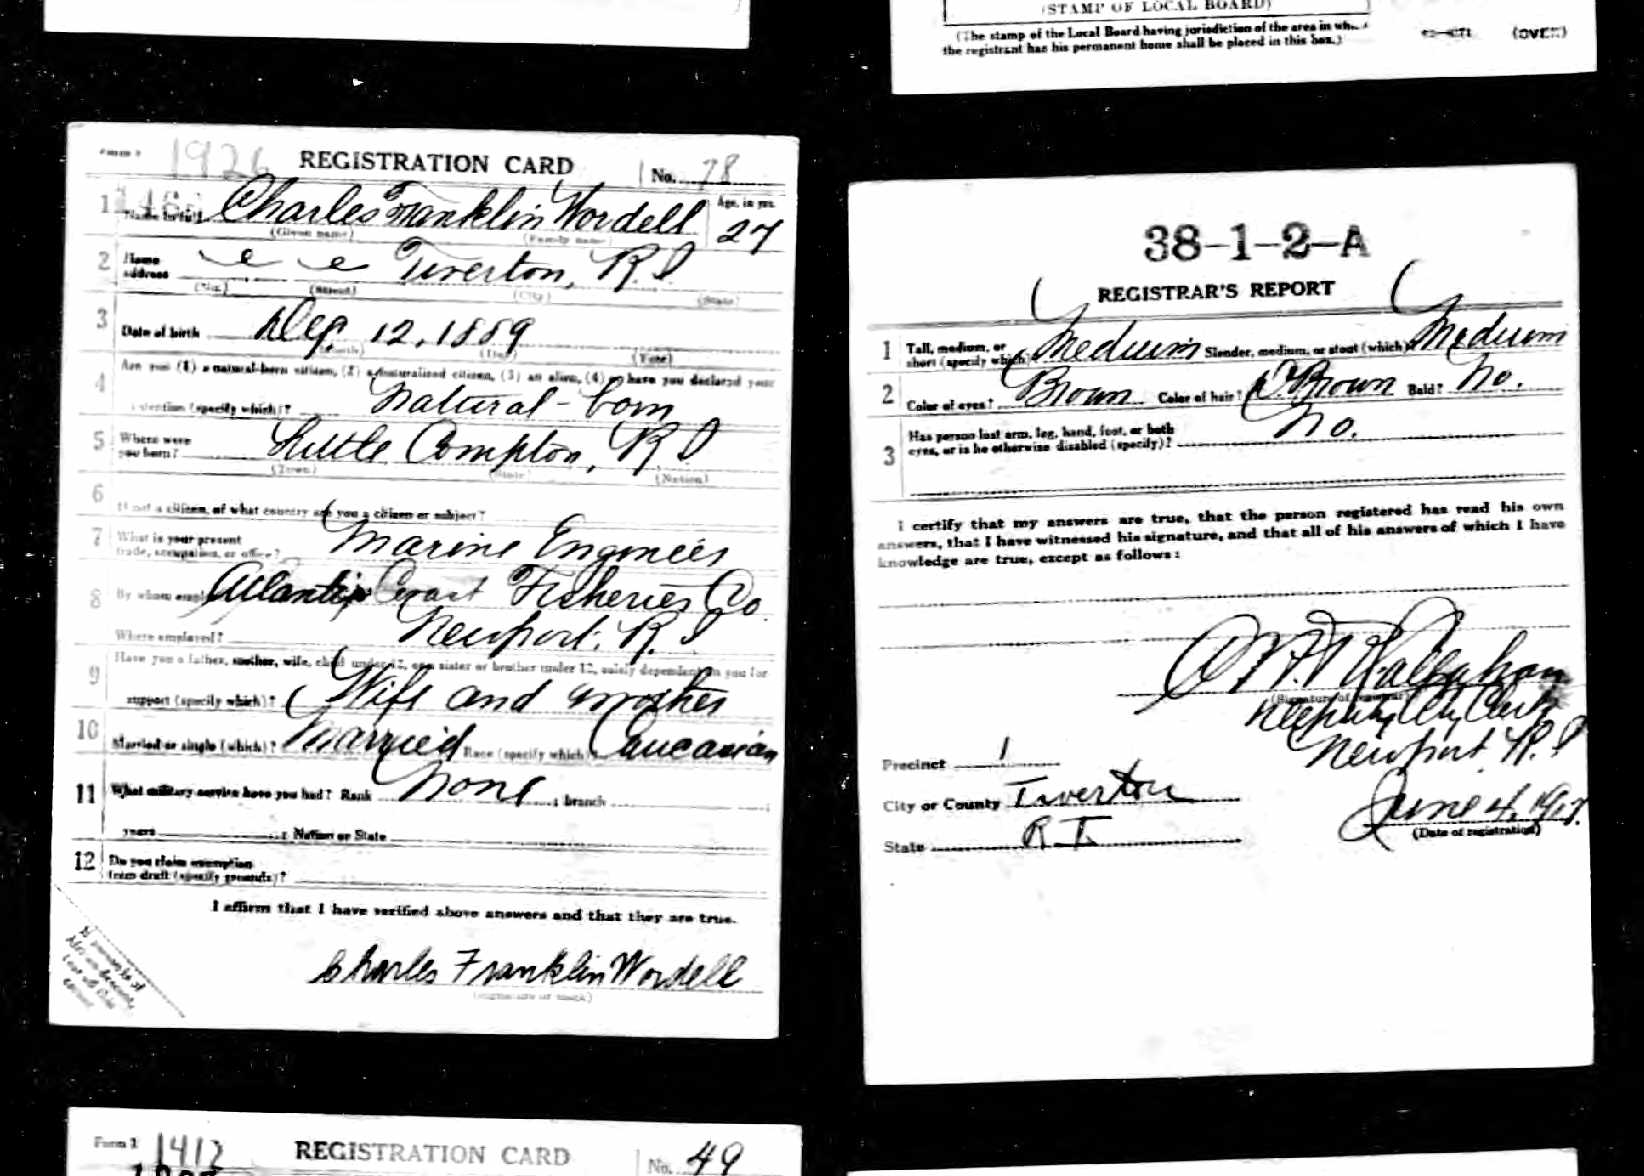 (STAMP OF LOCAL BOARD)
(The stamp of the Local Board having jurisdiction of the area in
the registrant has his permanent home shall be placed in this box.)
(OVER)
Form 1 1926 REGISTRATION CARD No. 78
1 Name in full Charles Franklin Wordell Age, in yrs. 27
(Given name) (Family name)
2 Home address Tiverton, R I
(No.) (Street) (City) (State)
3 Date of birth Dec. 12, 1889
(Month) (Day) (Year)
4 Are you (1) a natural-born citizen, (2) a naturalized citizen, (3) an alien, (4) or have you declared your
intention (specify which)? Natural-born
5 Where were you born? Little Compton, R I
(Town) (State) (Nation)
6 If not a citizen, of what country are you a citizen or subject?
7 What is your present trade, occupation, or office? Marine Engineer
8 By whom employed? Atlantic Coast Fisheries Co
Where employed? Newport, R. I
9 Have you a father, mother, wife, child under 12, or a sister or brother under 12, solely dependent on you for
support (specify which)? Wife and mother
10 Married or single (which)? Married Race (specify which)? Caucasian
11 What military service have you had? Rank None ; branch
years ; Nation or State
12 Do you claim exemption from draft (specify grounds)?
I affirm that I have verified above answers and that they are true.
Charles Franklin Wordell
(Signature or mark)
38-1-2-A
REGISTRAR'S REPORT
1 Tall, medium, or short (specify which)? Medium Slender, medium, or stout (which)? Medium
2 Color of eyes? Brown Color of hair? D. Brown Bald? No.
3 Has person lost arm, leg, hand, foot, or both
eyes, or is he otherwise disabled (specify)? No.
I certify that my answers are true, that the person registered has read his own
answers, that I have witnessed his signature, and that all of his answers of which I have
knowledge are true, except as follows:
Callaghan
(Signature of registrar)
Deputy City Clerk
Newport R. I
Precinct 1
City or County Tiverton
State R I
June 4, 1917.
(Date of registration)
Form 1 1412 REGISTRATION CARD No. 49